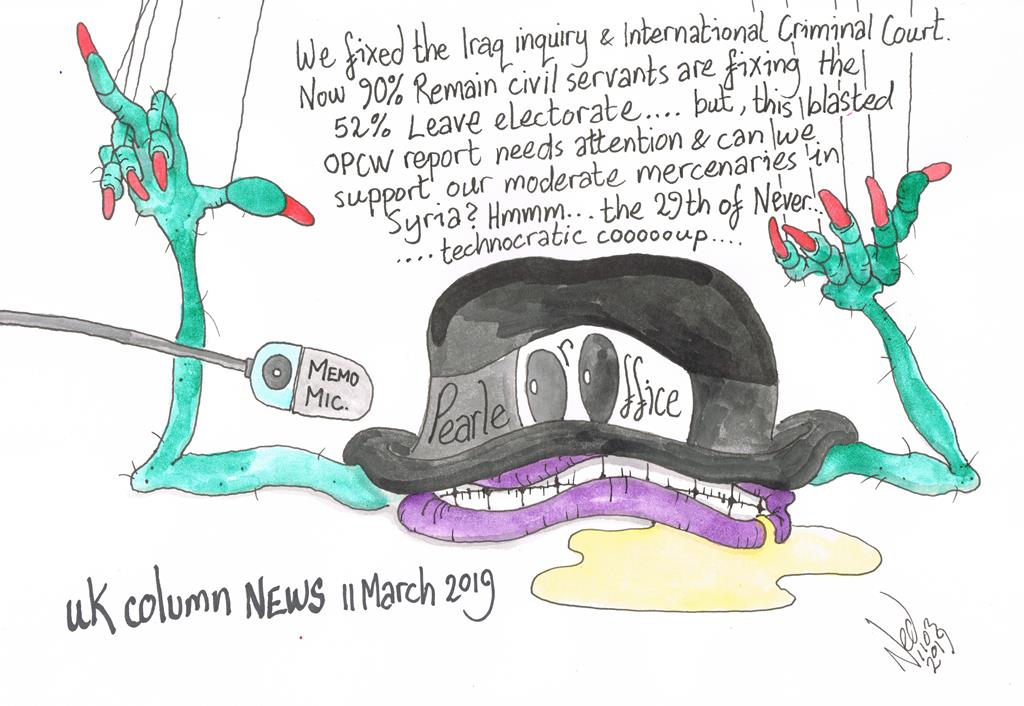 We fixed the Iraq inquiry & International Criminal Court.
Now 90% Remain civil servants are fixing the
52% Leave electorate.... but, this blasted
OPCW report needs attention & can we
support our moderate mercenaries in
Syria? Hmmm... the 29th of Never...
....technocratic coooooup....
MEMO
MIC.
Pearle r ffice
uk column NEWS 11 March 2019
Ned
11.03
2019